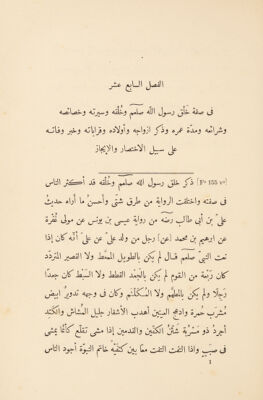 الفصل السابع عشر
فى صفة خلق رسول الله صلعم وخُلقه وسيرته وخصائصه
وشرائعه ومدة عمره وذكر ازواجه وأولاده وقراباته وخبر وفاته
على سبيل الاختصار والإيجاز
[Fº 155 vº] ذكر خلق رسول الله صلعم وخُلقه قد أكثر الناس
فى صفته واختلفت الرواية من طرق شتى وأحسنُ ما أراه حديثُ
علىّ بن أبى طالب رضه من رواية عيسى بن يونس عن مولى غُفرة
عن ابرهيم بن محمد (عن) رجل من ولد علىّ عن علىّ أنّه كان إذا
نعت النبىَّ صلعم قال لم يكن بالطويل الممغّط ولا القصير المتردّد
كان رَبْعة من القوم لم يكن بالجَعْد القَطَط ولا السَبْط كان جعدًا
رَجلًا ولم يكن بالمطهَّم ولا المُكَلْثَم وكان فى وجهه تدويرٌ ابيضُ
مُشْرَب حمرةً وادعج العينين أهدب الأشفار جليل المُشَاش والكَتَد
أجردَ ذو مَسْرُبَةٍ شَثْنُ الكفَّين والقدمين إذا مشى تقلّع كأنّما يمشى
فى صَبَبٍ واذا التفت التفت معًا بين كتفَيْه خاتم النبوّة أجود الناس
١